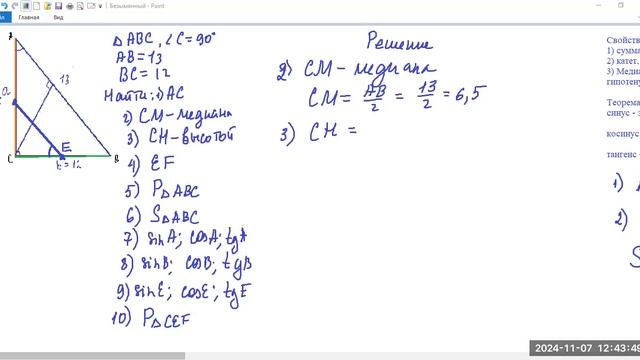 Безымянный - Paint
Файл
Главная
Вид
ΔABC, ∠C=90°
AB=13
BC=12
Найти: 1) AC
2) CM – медиана
3) CH – высотой
4) EF
5) PΔABC
6) SΔABC
7) sinA; cosA; tgA
8) sinB; cosB; tgB
9) sinE; cosE; tgE
10) PΔCEF
13
a
C
E
b=12
B
Решение
2) CM – медиана
CM = AB/2 = 13/2 = 6,5
3) CH =
Свойств
1) сумм
2) катет,
3) Меди
гипотену
Теорема
синус - з
косинус
тангенс -
1)
2)
S
2024-11-07 12:43:49